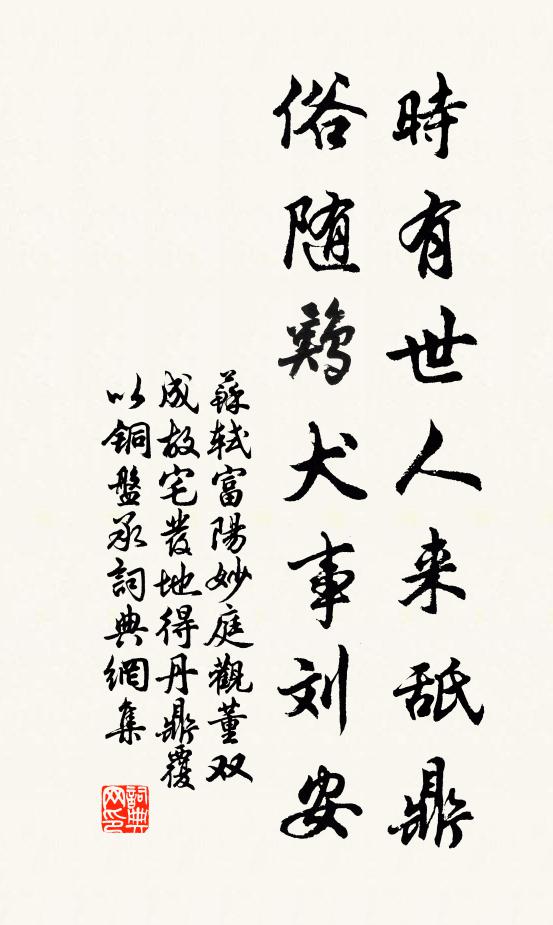 時有世人来舐鼎
俗随鷄犬事刘安
蘇軾富陽妙庭觀董双
成故宅發地得丹鼎覆
以銅盤承詞典網集
詞典
网印